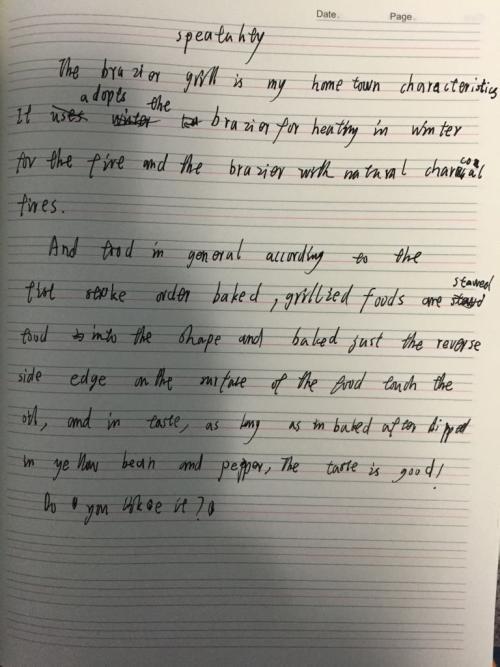 Date.
Page.
speatuhty
The brazier grill is my home town characteristics
It adopts the brazier for heating in winter
for the fire and the brazier with natural charcoal
fires.
And food in general according to the
first stroke order baked, grillized foods are stawed
food into the shape and baked just the reverse
side edge on the surface of the food touch the
oil, and in taste, as long as in baked after dipped
in yellow bean and pepper, The taste is good!
Do you like it?